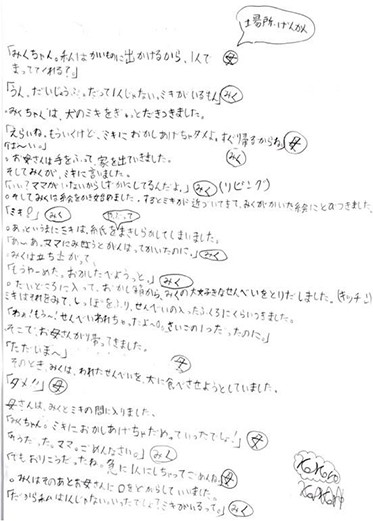 場所.げんかん
「みくちゃん。私はかいものに出かけるから、1人で 母
まっててくれる？」
「うん、だいじょうぶ。だって1人じゃない。ミキがいるもん」みく
みくちゃんは、犬のミキをぎゅっとだきつきました。
「えらいね。もういくけど、ミキにおかしあげちゃダメよ。すぐ帰るからね」母
「は〜い。」 みく
。お母さんは手をふって、家を出ていきました。
そしてみくが、ミキに言いました。
「いい？ママがいないからしずかにしてるんだよ。」みく (リビング)
。そしてみくは絵をかき始めました。するとミキが近づいてきて、みくがかいた絵にとびつきました。
「ミキ？」みく
。あっというまにミキは、紙をまきちらかしてしまいました。
「あ〜あ。ママにみせようとがんばってかいたのに。」みく
。みくは立ち上がって、
「もうや〜めた。おかしたべようっと。」みく
。だいどころに入って、おかし箱から、みくの大好きなせんべいをとりだしました。(キッチン)
ミキはそれをみて、しっぽをふり、せんべいの入ったふくろにくらいつきました。
「わぁ！もう〜！せんべいわれちゃったよ〜。さいごの1つだったのに。」
そこで、お母さんが帰ってきました。
「ただいま〜」 母
そのとき、みくは、われたせんべいを、犬に食べさせようとしていました。
「ダメ!!」母
母さんは、みくとミキの間に入りました。
「みくちゃん。ミキにおかしあげちゃだめっていったでしょ！」母
「あうだった。ママ。ごめんなさい。」みく
「でもおりこうだったね。急に1人にしちゃってごめんね」母
。みくはそのあとお母さんに口をとがらしていいました。
「だからわたしは1人じゃないっていったでしょ？ミキがいるって。」みく